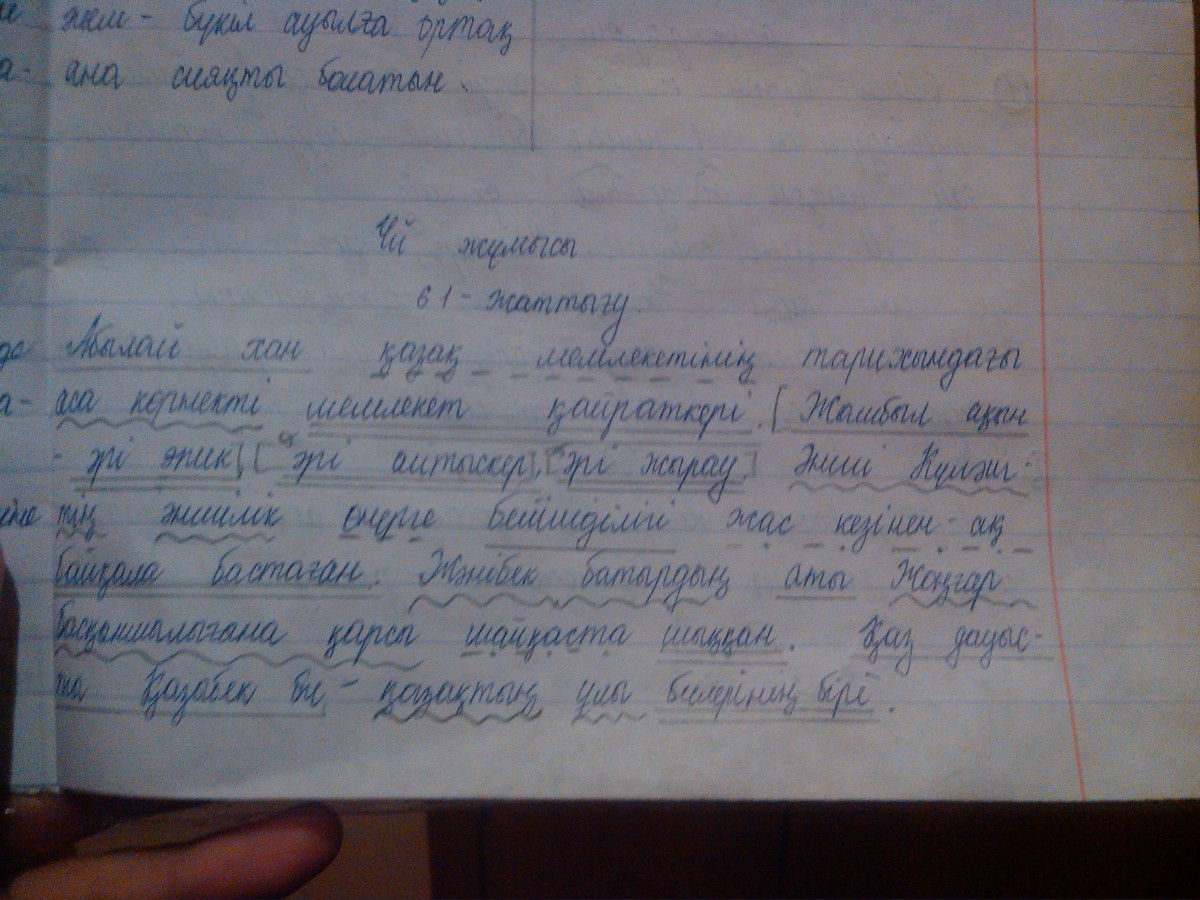 жем - бүкіл ауылға ортақ
а- ана сияқты болатын.
Үй жұмысы
61 - жаттығу.
Абылай хан қазақ мемлекетінің тарихындағы
а- аса көрнекті мемлекет қайраткері. [Жамбыл ақын
- әрі эпик], [әрі айтыскер], [әрі жырау.] Әнші Күләш-
тің әншілік өнерге бейімділігі жас кезінен-ақ
байқала бастаған. Жәнібек батырдың аты Жоңғар
басқыншылығана қарсы шайқаста шыққан. Қаз дауыс-
ты Қазыбек би - қазақтың ұлы билерінің бірі.